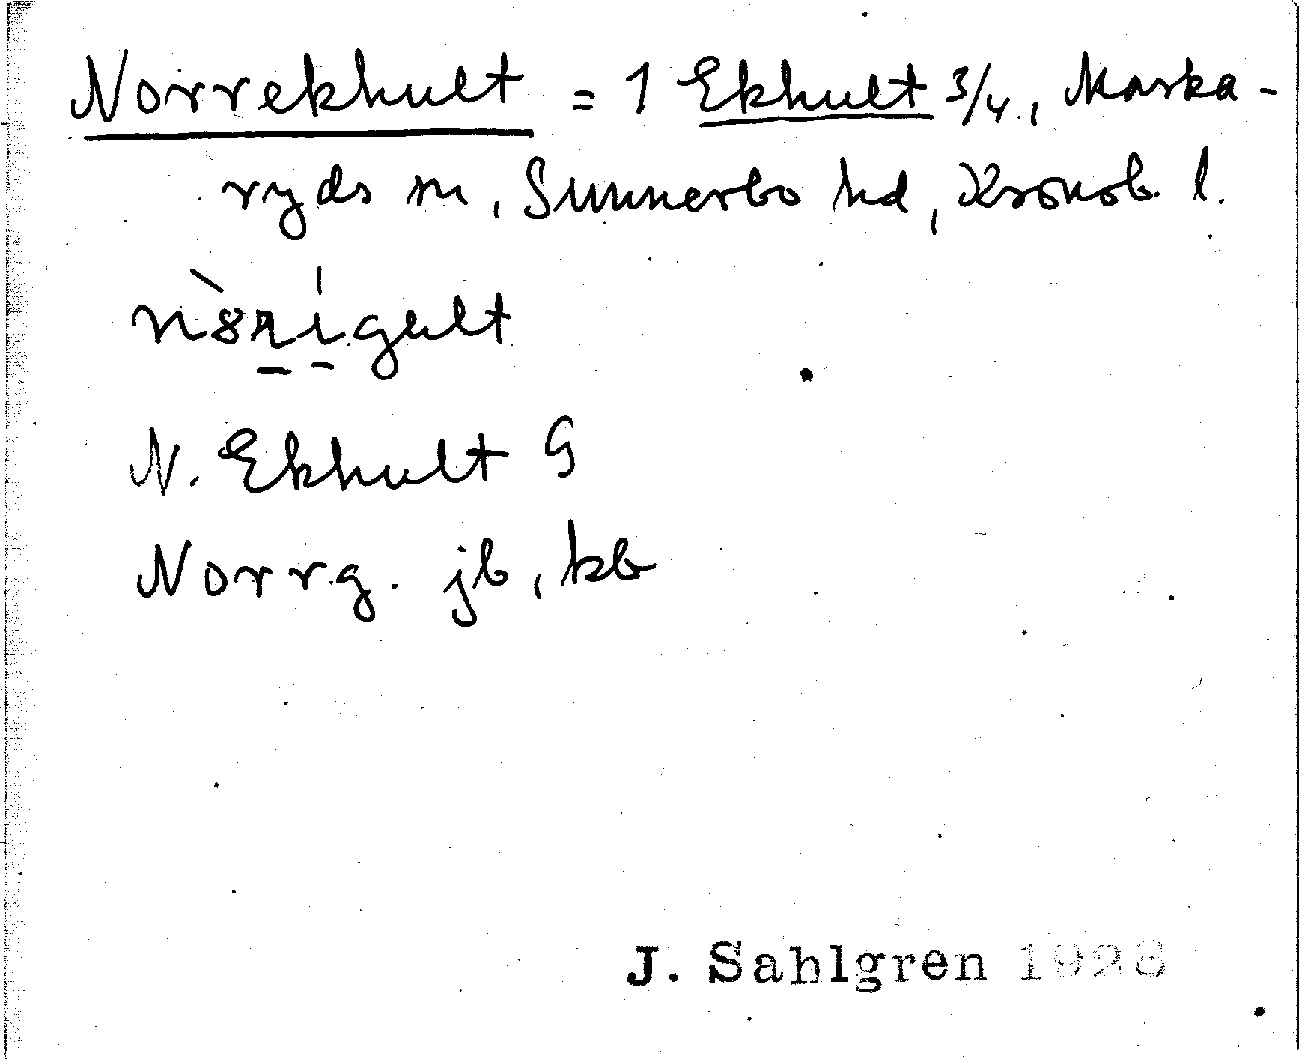 Norrekhult = 1 Ekhult 3/4, Marka-
ryds sn, Sunnerbo hd, Kronob. l.
N. Ekhult G
Norrg. jb, kb
J. Sahlgren 1928